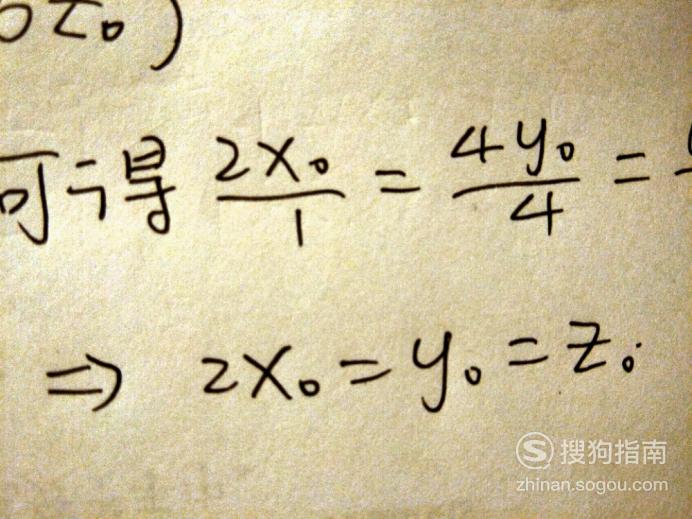 6z₀)
可得 2x₀/1 = 4y₀/4 =
⇒ 2x₀ = y₀ = z₀
搜狗指南
zhinan.sogou.com